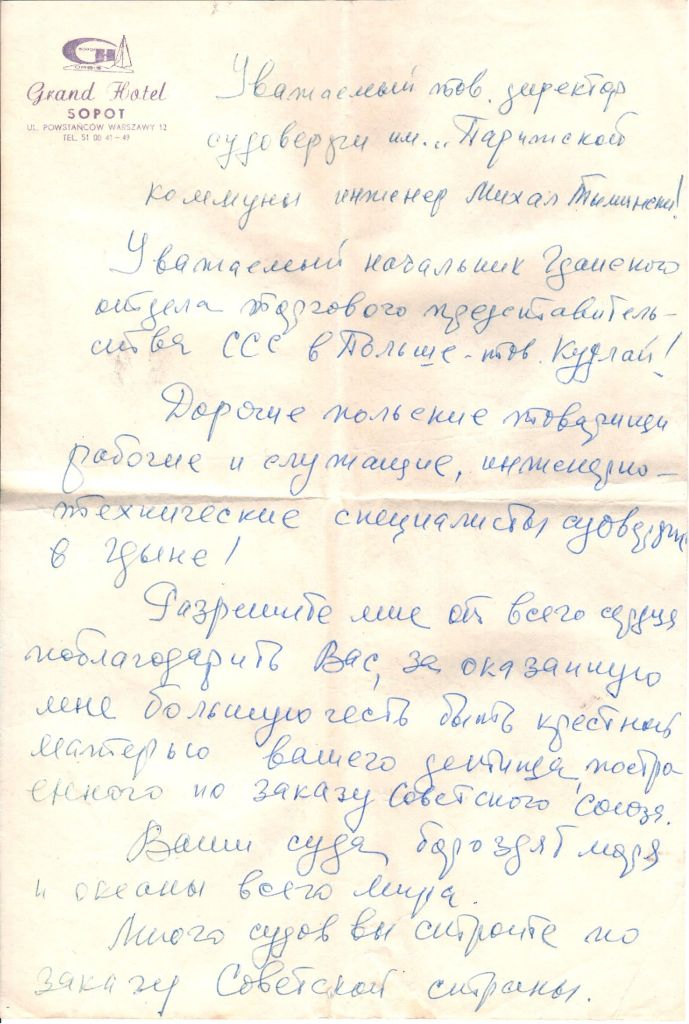 ORBIS
Grand Hotel
SOPOT
UL. POWSTAŃCÓW WARSZAWY 12
TEL. 51 00 41-49
Уважаемый тов. директор
судоверфи им. „Парижской
коммуны инженер Михал Тыминский!
Уважаемый начальник Гданского
отдела торгового представитель-
ства ССС в Польше - тов. Кудлай!
Дорогие польские товарищи
рабочие и служащие, инженерно-
технические специалисты судоверфи
в Гдыне!
Разрешите мне от всего сердца
поблагодарить Вас, за оказанную
мне большую честь быть крестной
матерью вашего детища, постро
енного по заказу Советского Союза.
Ваши суда бороздят моря
и океаны всего мира.
Много судов вы строите по
заказу Советской страны.